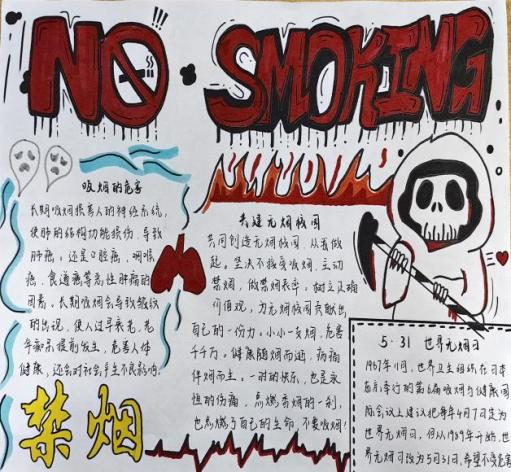 NO SMOKING
吸烟的危害
长期吸烟损害人的神经系统,
使肺的结构功能损伤,导致
肺癌;还是口腔癌、咽喉
癌、食道癌等恶性肿瘤的
因素。长期吸烟会导致皱纹
的出现,使人过早衰老,老
年痴呆提前发生,危害人体
健康,还会对社会产生不良影响.
禁烟
共建无烟校园
共同创造无烟校园,从看做
起,坚决不接受吸烟,主动
禁烟,做禁烟表率,树立正确
价值观,为无烟校园贡献出
自己的一份力。小小一支烟,危害
千千万,健康随烟而逝,病痛
伴烟而生。一时的快乐,也是永
恒的伤痛,点燃香烟的一刹,
也点燃了自己的生命,不要吸烟!
5·31 世界无烟日
1987年11月,世界卫生组织在日本
东京举行的第6届吸烟与健康国
际会议上建议把每年4月7日定为
世界无烟日,但从1989年开始,世
界无烟日改为5月31日,希望不受危害